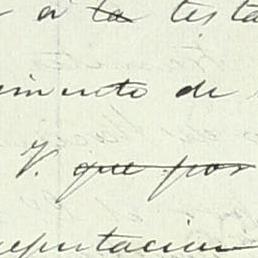 a la testa
imiento de
V. que por
reputacion